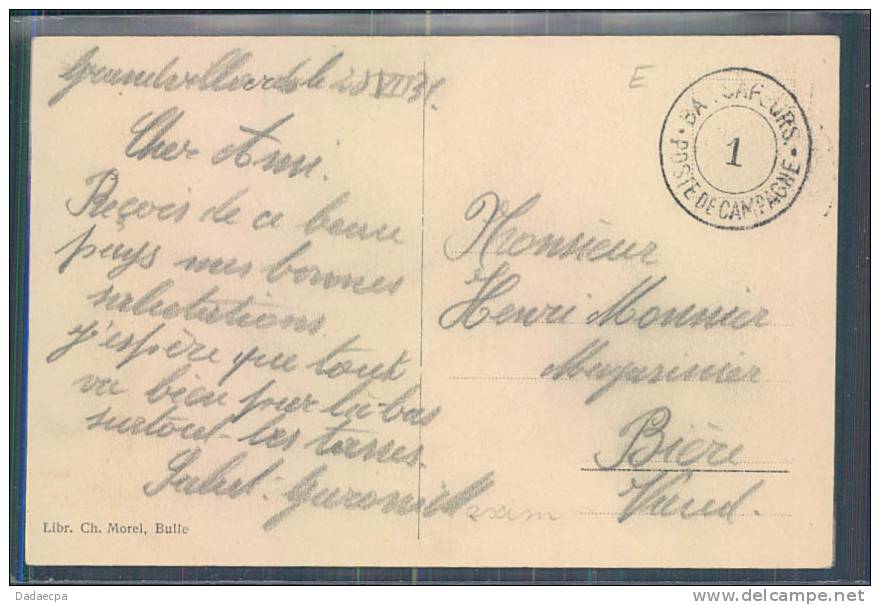 Grandvillard le 28 VII 31.
Cher Ami.
Reçois de ce beau
pays mes bonnes
salutations.
J'espère que tout
va bien pour là-bas
surtout les
Salut.
Libr. Ch. Morel, Bulle
E
BAT. SAPEURS.
1
POSTE DE CAMPAGNE
Monsieur
Henri Monnier
Magasinier
Bière
Vaud.
Dadaecpa
www.delcampe.net